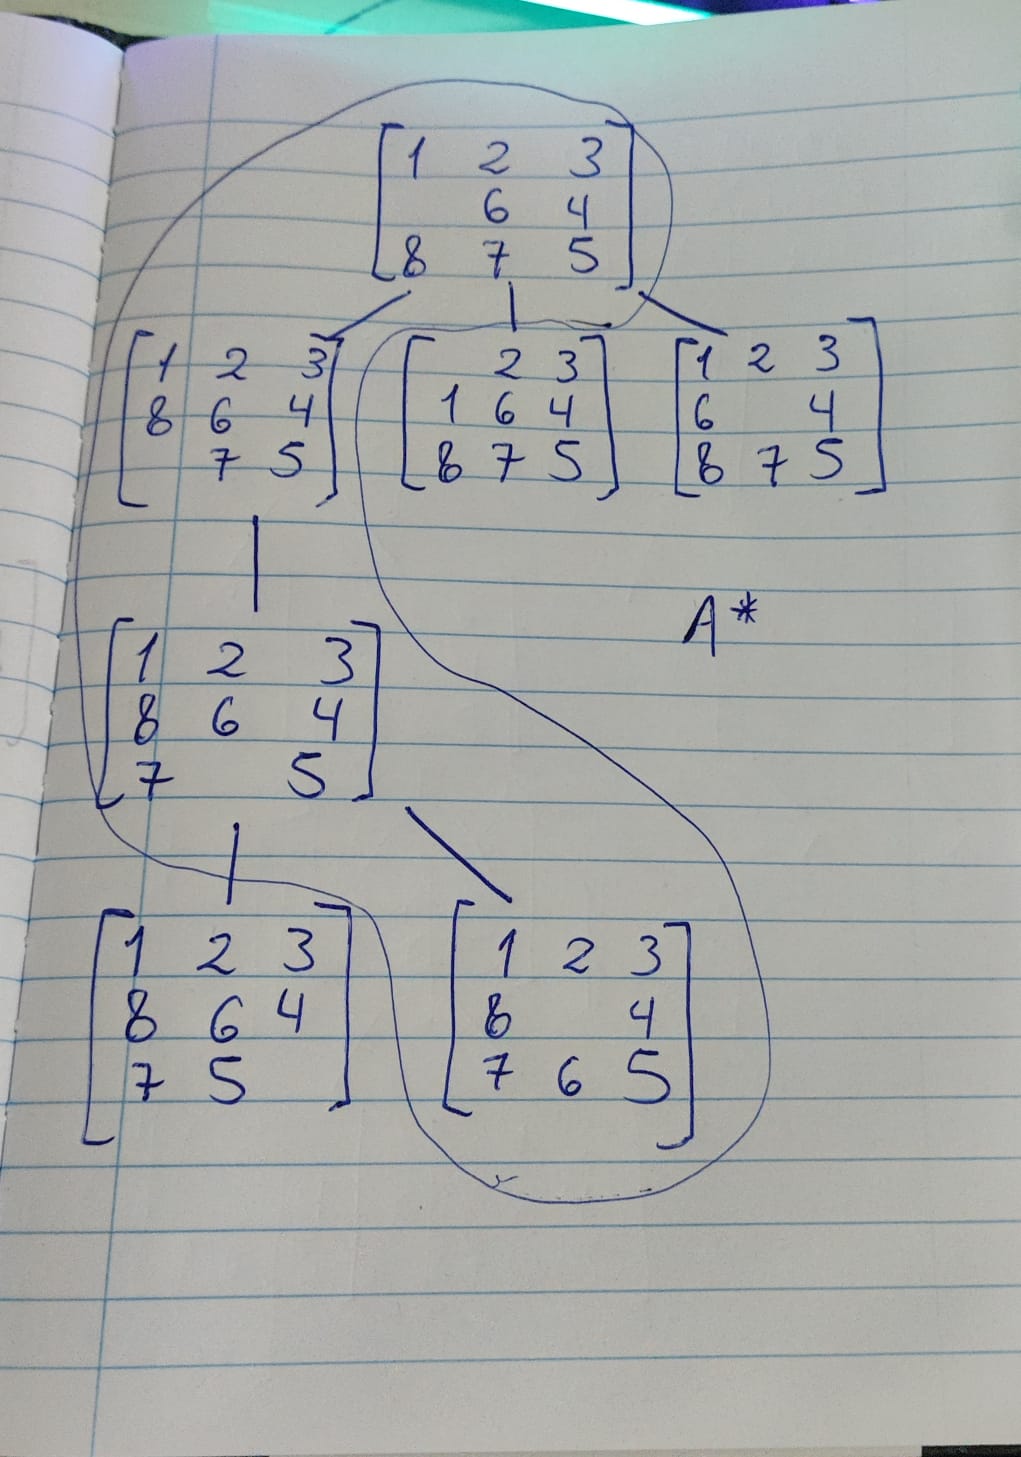 1 2 3
6 4
8 7 5
1 2 3
8 6 4
7 5
2 3
1 6 4
8 7 5
1 2 3
6 4
8 7 5
A*
1 2 3
8 6 4
7 5
1 2 3
8 6 4
7 5
1 2 3
8 4
7 6 5